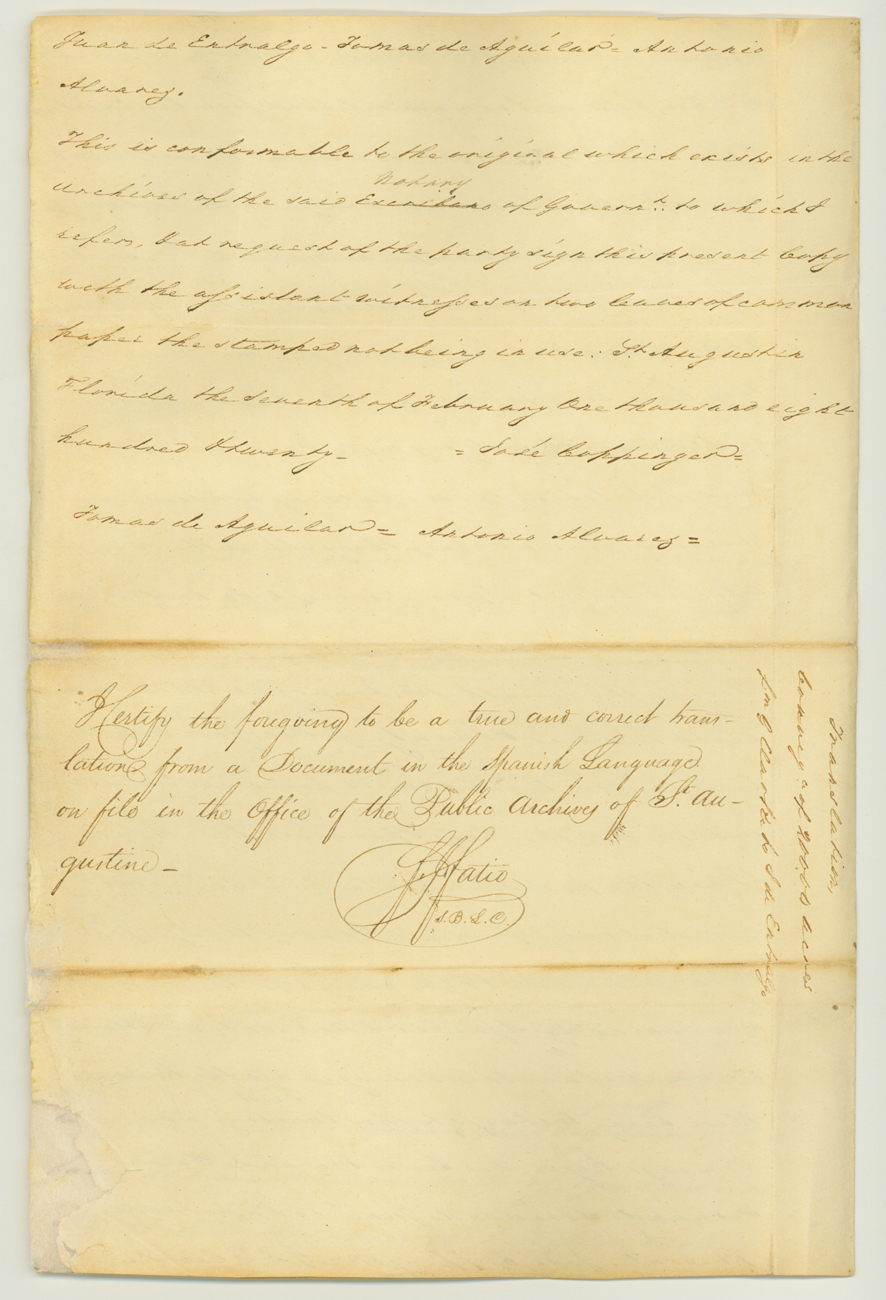 Juan de Entralgo - Tomas de Aguilar = Antonio
Alvarez.
This is conformable to the original which exists in the
Notary
archives of the said Escribano of Governt. to which I
refer, & at request of the party sign this present Copy
with the assistant witnesses on two leaves of common
paper the stamped not being in use: St Augustin
Florida the Seventh of February One thousand eight
hundred & twenty - = José Coppinger =
Tomas de Aguilar = Antonio Alvarez =
I Certify the foregoing to be a true and correct trans=
lation from a Document in the Spanish Language
on file in the Office of the Public Archives of St. Au-
gustine -
FJ Fatio
S.B.L.C.
Translation,
Convey.ce of 20000 acres
Geo J Clarke to J de Entralgo